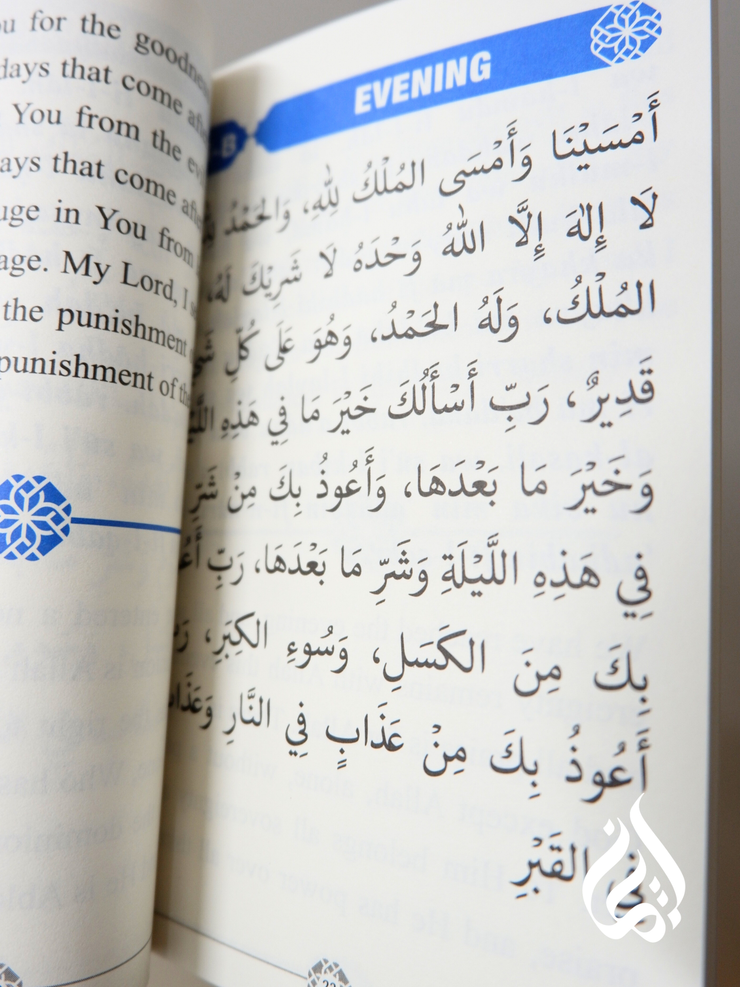 u for the
days that come
You from the
ays that come
uge in You from
age. My Lord, I
the punishment
punishment of the
EVENING
أَمْسَيْنَا وَأَمْسَى المُلْكُ لِلهِ، وَالحَمْدُ
لَا إِلٰهَ إِلَّا اللهُ وَحْدَهُ لَا شَرِيْكَ لَهُ،
المُلْكُ، وَلَهُ الحَمْدُ، وَهُوَ عَلَى كُلِّ
قَدِيرٌ، رَبِّ أَسْأَلُكَ خَيْرَ مَا فِي هَذِهِ
وَخَيْرَ مَا بَعْدَهَا، وَأَعُوذُ بِكَ مِنْ شَرِّ
فِي هَذِهِ اللَّيْلَةِ وَشَرِّ مَا بَعْدَهَا، رَبِّ
بِكَ مِنَ الكَسَلِ، وَسُوءِ الكِبَرِ،
أَعُوذُ بِكَ مِنْ عَذَابٍ فِي النَّارِ
فِي القَبْرِ